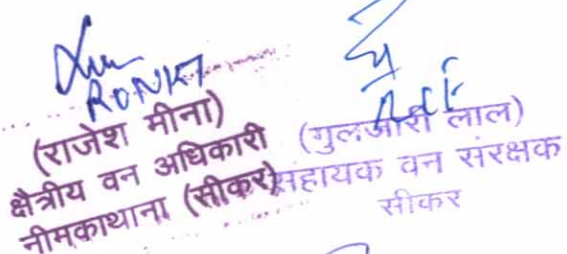 RONKT
ACF
(राजेश मीना)
क्षैत्रीय वन अधिकारी
नीमकाथाना (सीकर)
(गुलजारी लाल)
सहायक वन संरक्षक
सीकर